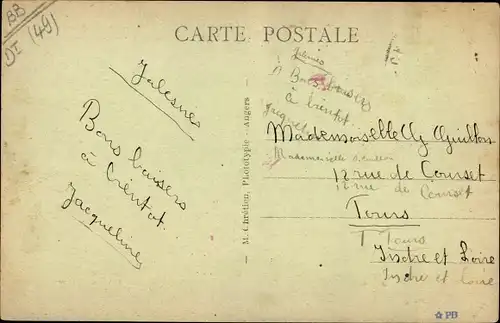 BB
DI (49)
CARTE POSTALE
Jalesnes
Bons baisers
à bientot.
Jacqueline
M. Chrétien, Phototypie - Angers
Jalesnes
Bons baisers
à bientot.
Jacqueline
Mademoiselle G Guillon
Mademoiselle
12 rue de Courset
12 rue de Courset
Tours
T Tours
Indre et Loire
Indre et Loire
☆PB